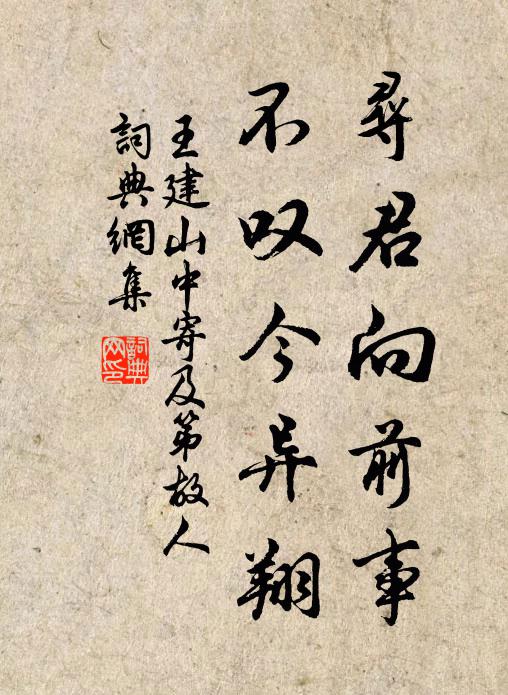 尋君向前事
不叹今异翔
王建山中寄及第故人
詞典網集
詞典網印